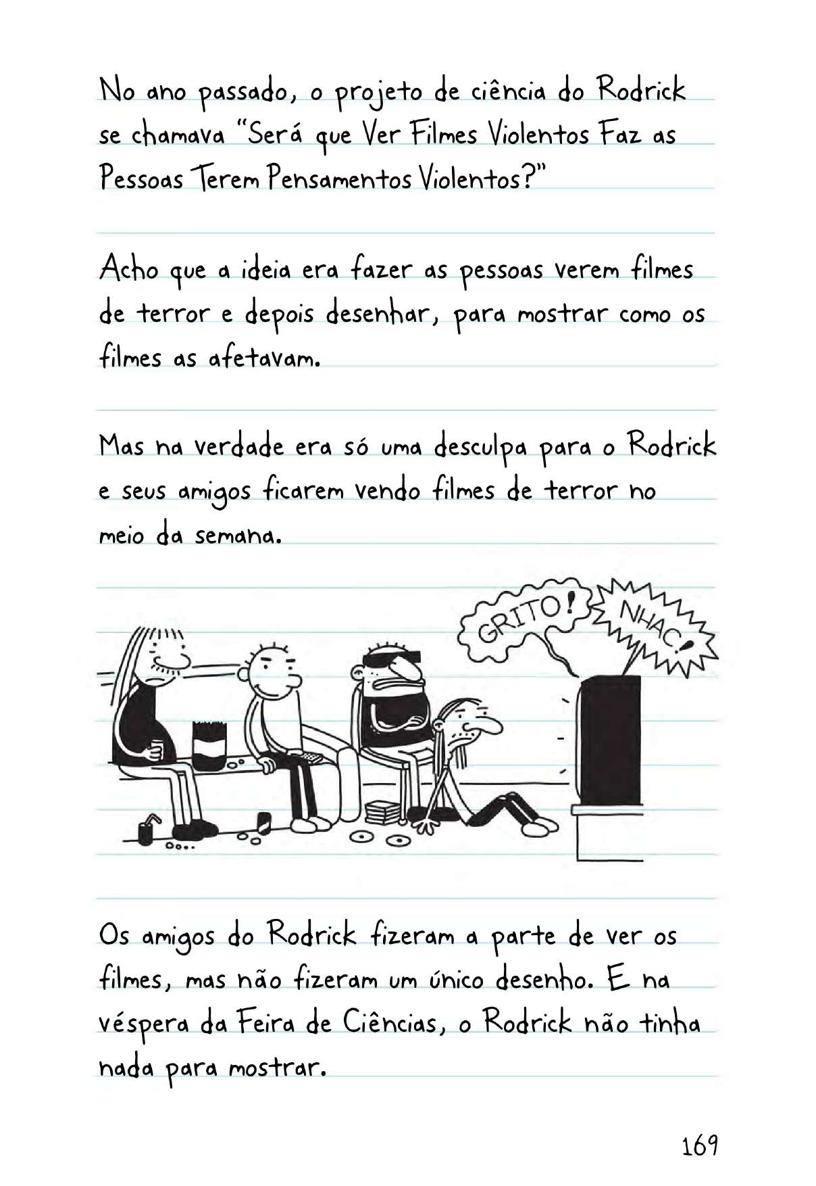 No ano passado, o projeto de ciência do Rodrick
se chamava "Será que Ver Filmes Violentos Faz as
Pessoas Terem Pensamentos Violentos?"
Acho que a ideia era fazer as pessoas verem filmes
de terror e depois desenhar, para mostrar como os
filmes as afetavam.
Mas na verdade era só uma desculpa para o Rodrick
e seus amigos ficarem vendo filmes de terror no
meio da semana.
GRITO!
NHAC!
Os amigos do Rodrick fizeram a parte de ver os
filmes, mas não fizeram um único desenho. E na
véspera da Feira de Ciências, o Rodrick não tinha
nada para mostrar.
169